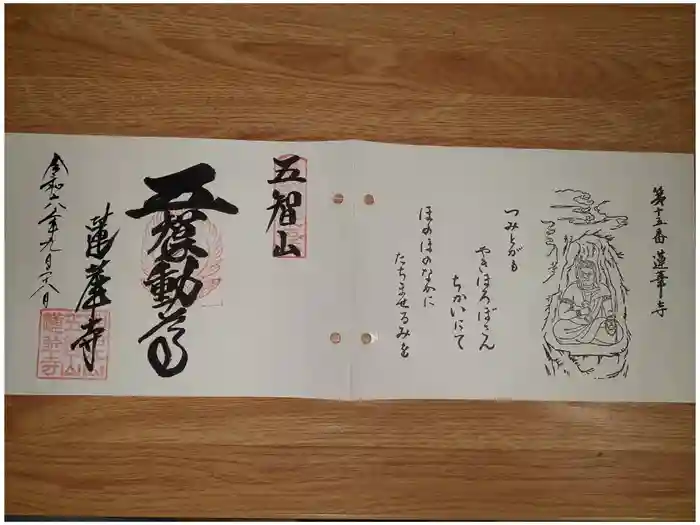 第十五番 蓮華寺
つみとがも
やきほろぼさん
ちかいにて
ほのほのなかに
たちませるみを
五智山
不動尊
蓮華寺
令和六年九月二十八日